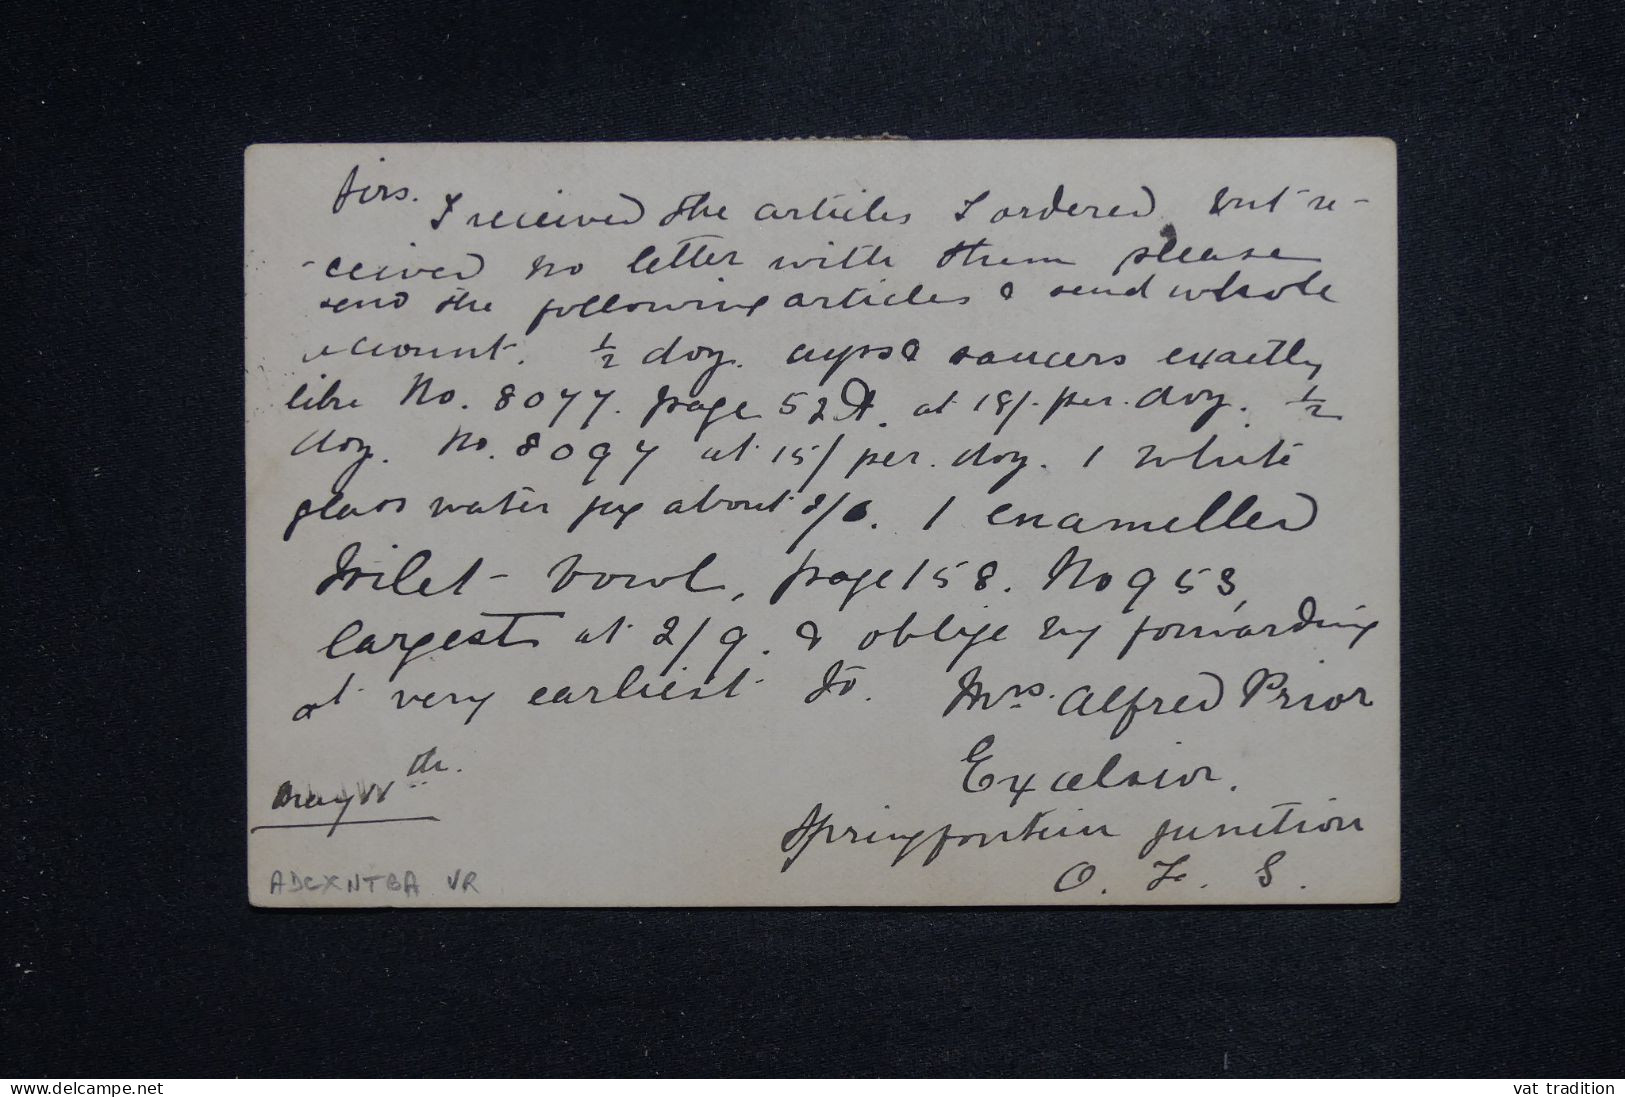 Sirs.
I received the articles I ordered but re-
-ceived no letter with them please
send the following articles & send whole
account. ½ doz. cups & saucers exactly
like No. 8077. page 52 at 18/- per. doz. ½
doz. No. 8097 at 15/ per. doz. 1 white
glass water jug about 2/6. 1 enamelled
Toilet - bowl, page 158. No 953,
largest at 2/9. & oblige by forwarding
at very earliest to. Mrs. Alfred Prior
Excelsior.
Springfontein junction
O. F. S.
May 11th.
ADCXNTBA VR
www.delcampe.net
vat tradition